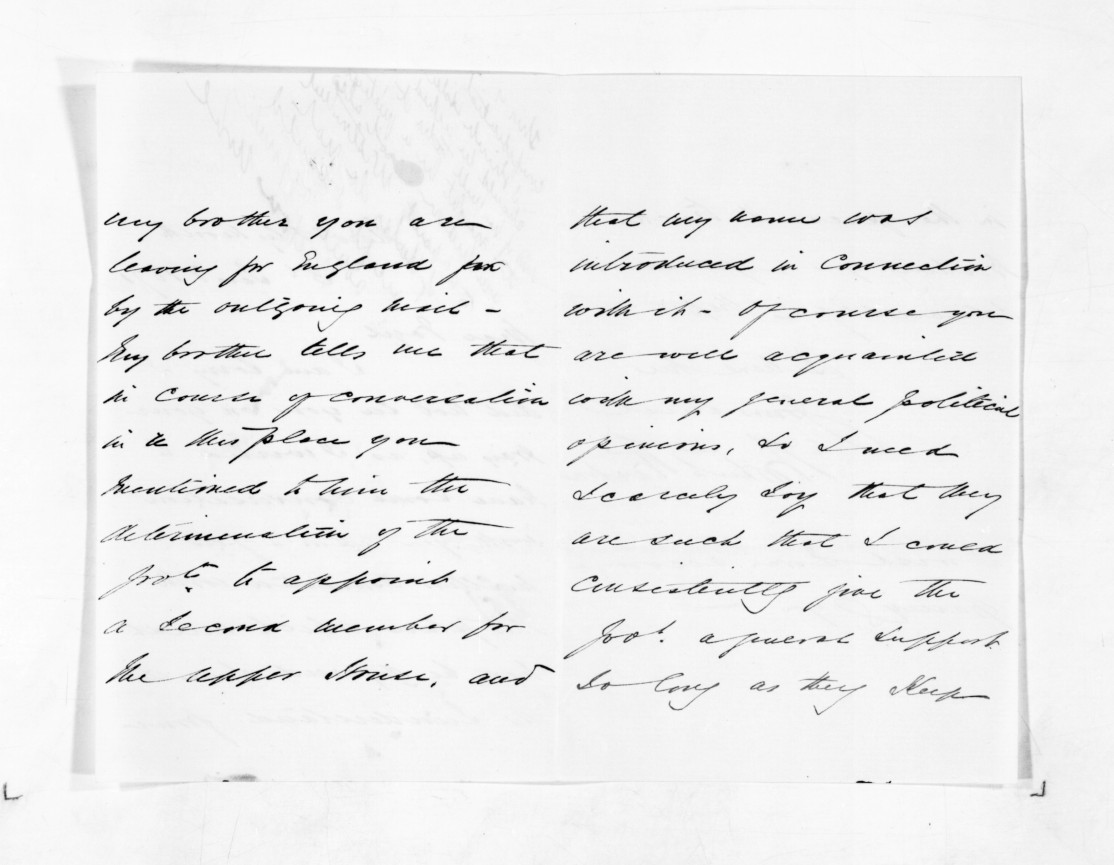 my brother you are
leaving for England
by the outgoing mail -
My brother tells me that
in course of conversation
in this place you
mentioned to him the
determination of the
Govt. to appoint
a second member for
the Upper House, and
that my name was
introduced in connection
with it - Of course you
are well acquainted
with my general political
opinions, so I need
scarcely say that they
are such that I could
consistently give the
Govt. a general support
so long as they keep